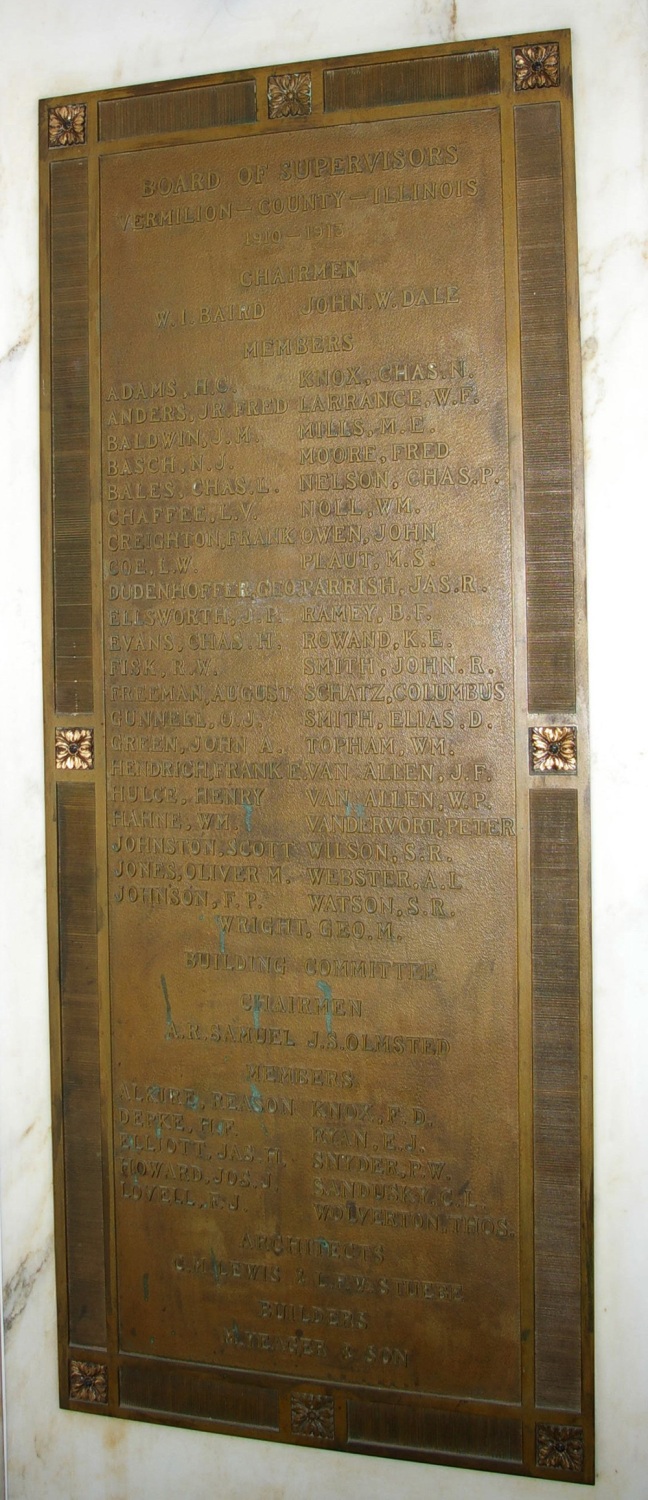 BOARD OF SUPERVISORS
VERMILION—COUNTY—ILLINOIS
1910—1912
CHAIRMEN
W. I. BAIRD JOHN. W. DALE
MEMBERS
ADAMS, H.C. KNOX, CHAS. N.
ANDERS, JR. FRED LARRANCE, W.F.
BALDWIN, J. M. MILLS, M.E.
BASCH, N.J. MOORE, FRED
BALES, CHAS. L. NELSON, CHAS. P.
CHAFFEE, L.V. NOLL, WM.
CREIGHTON, FRANK OWEN, JOHN
COE, L.W. PLAUT, M.S.
DUDENHOFFER, GEO PARRISH, JAS. R.
ELLSWORTH, J.P. RAMEY, B.F.
EVANS, CHAS. H. ROWAND, K.E.
FISK, R.W. SMITH, JOHN. R.
FREEMAN, AUGUST SCHATZ, COLUMBUS
GUNNELL, O.J. SMITH, ELIAS. D.
GREEN, JOHN A. TOPHAM, WM.
HEIDRICH, FRANK E. VAN ALLEN, J.F.
HULCE, HENRY VAN ALLEN, W.P.
HAHNE, WM. VANDERVORT, PETER
JOHNSTON, SCOTT WILSON, S.R.
JONES, OLIVER M. WEBSTER, A.L
JOHNSON, F.P. WATSON, S.R.
WRIGHT, GEO. M.
BUILDING COMMITTEE
CHAIRMEN
A.R. SAMUEL J.S. OLMSTED
MEMBERS
ALKIRE, REASON KNOX, F.D.
DEPKE, H.F. RYAN, E.J.
ELLIOTT, JAS. H. SNYDER, P.W.
HOWARD, JOS. J. SANDUSKY, C.L.
LOVELL, F.J. WOLVERTON, THOS.
ARCHITECTS
C.M. LEWIS & L.F.W. STUEBE
BUILDERS
M. YEAGER & SON